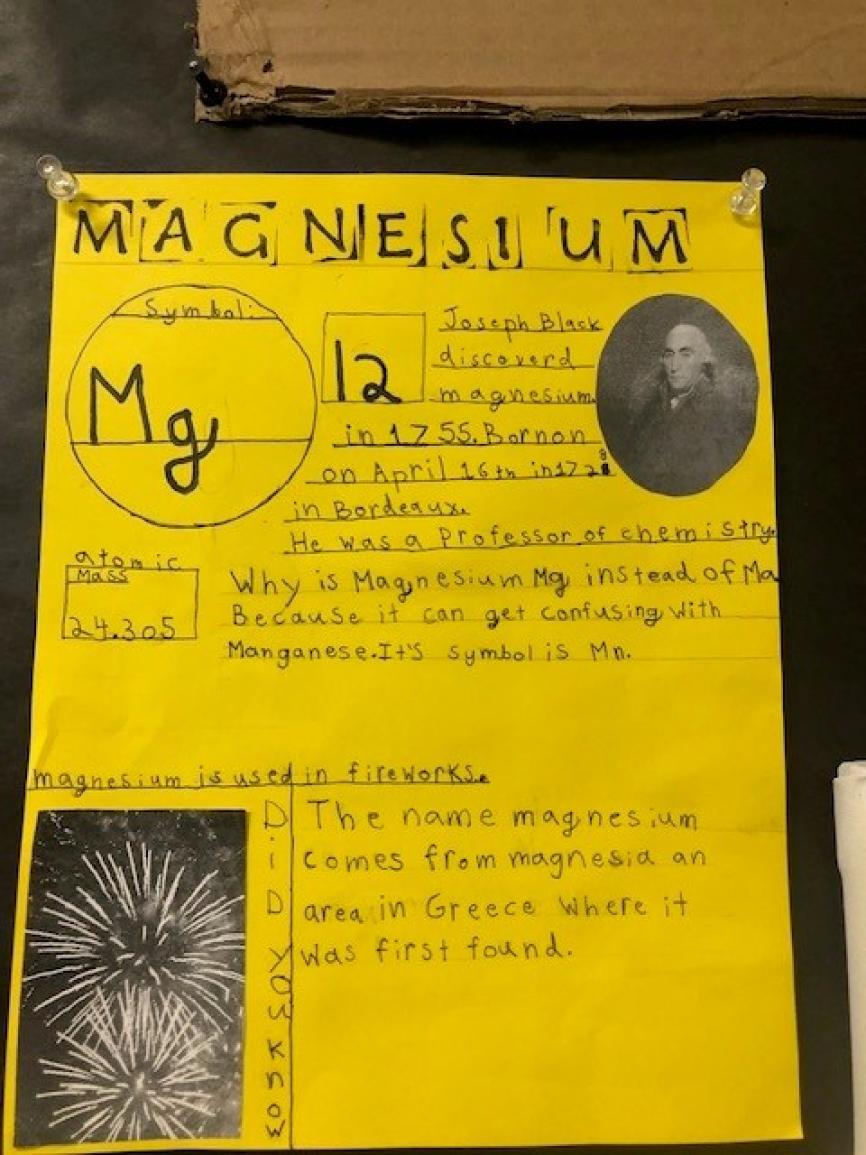 MAGNESIUM
Symbol:
Mg
12
Joseph Black
discoverd
magnesium
in 1755. Bornon
on April 16th in 1728
in Bordeaux.
He was a Professor of chemistry.
atomic
Mass
24.305
Why is Magnesium Mg instead of Ma
Because it can get confusing with
Manganese. It's symbol is Mn.
magnesium is used in fireworks.
DiD you know
The name magnesium
comes from magnesia an
area in Greece where it
was first found.